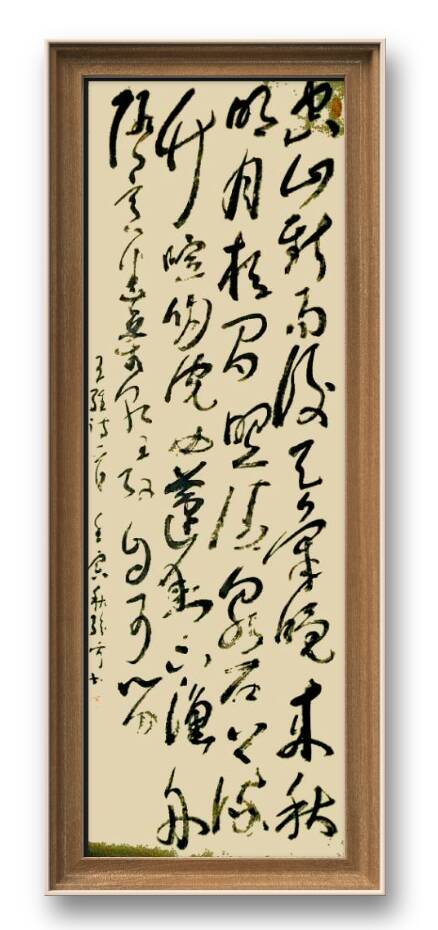 空山新雨後天氣晚来秋
明月松間照清泉石上流
竹喧歸浣女蓮動下漁舟
随意春芳歇王孫自可留
王維诗一首 壬寅秋 书